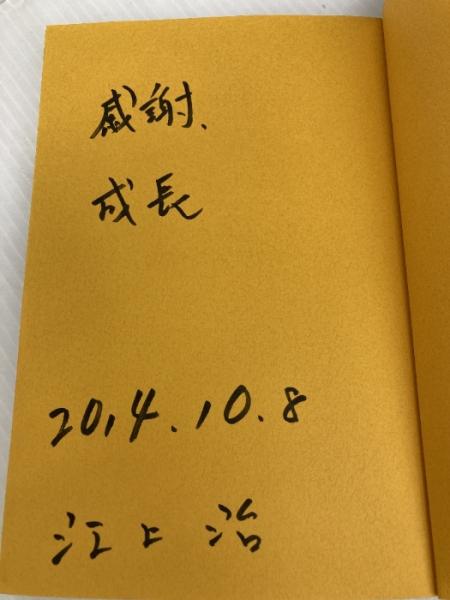 感謝、
成長
2014.10.8
江上 治